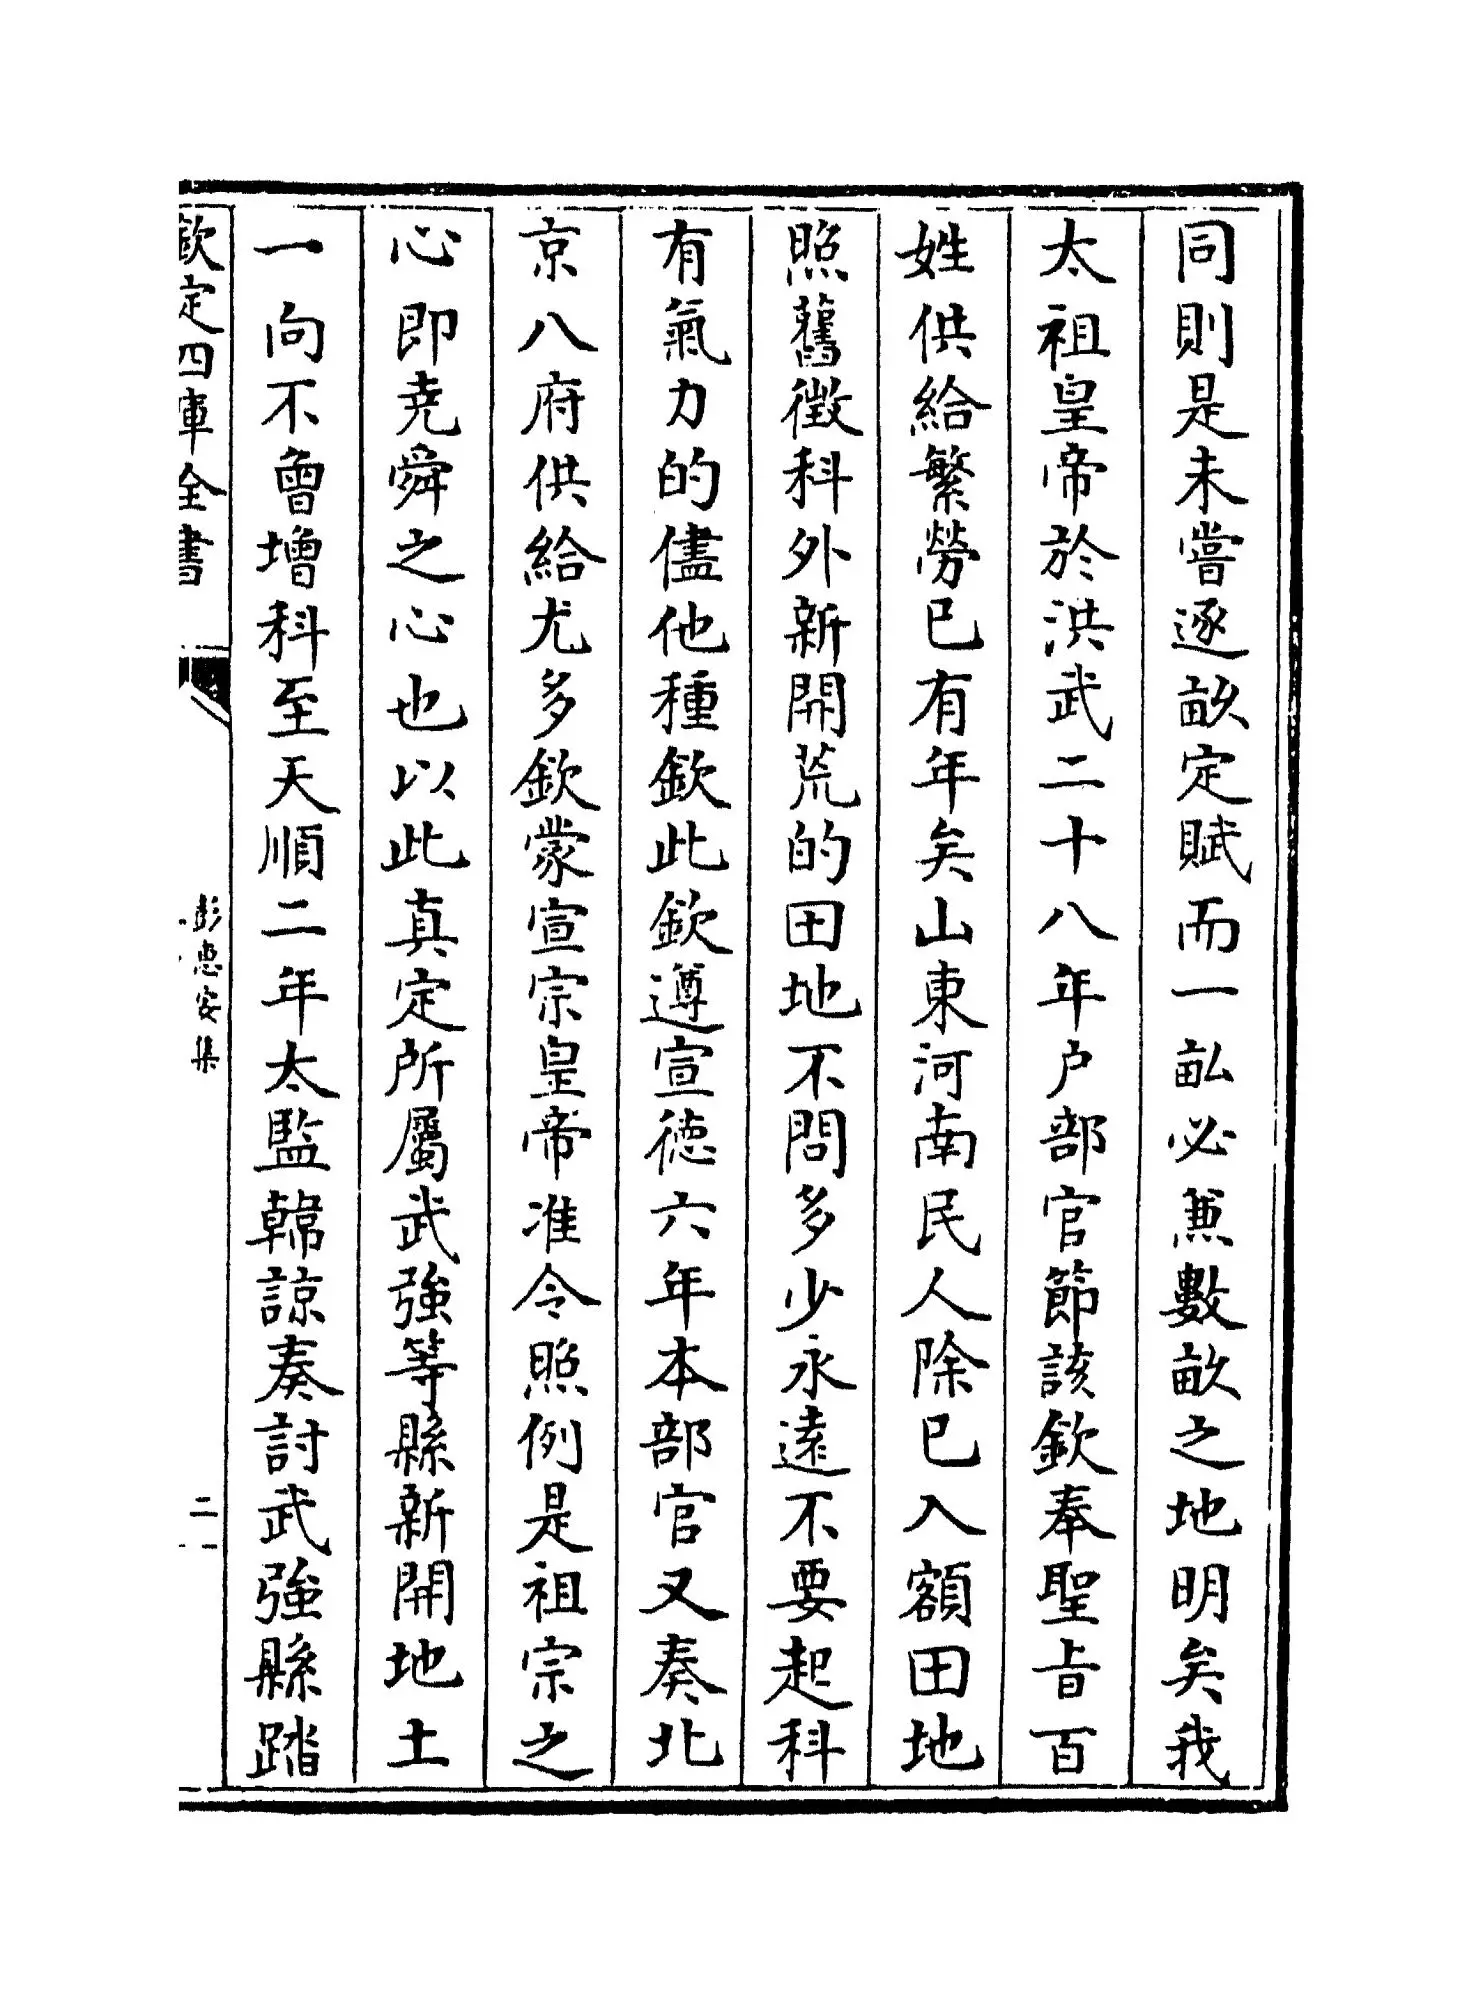 同則是未嘗逐畝定賦而一畆必蒹數畝之地明矣我
太祖皇帝於洪武二十八年户部官節該欽奉聖旨百
姓供給繁勞已有年矣山東河南民人除已入額田地
照舊徴科外新開荒的田地不問多少永逺不要起科
有氣力的儘他種欽此欽遵宣德六年本部官又奏北
京八府供給尤多欽蒙宣宗皇帝准令照例是祖宗之
心即堯舜之心也以此真定所屬武強等縣新開地土
一向不曾增科至天順二年太監韓諒奏討武強縣踏
欽定四庫全書
彭惠安集
二